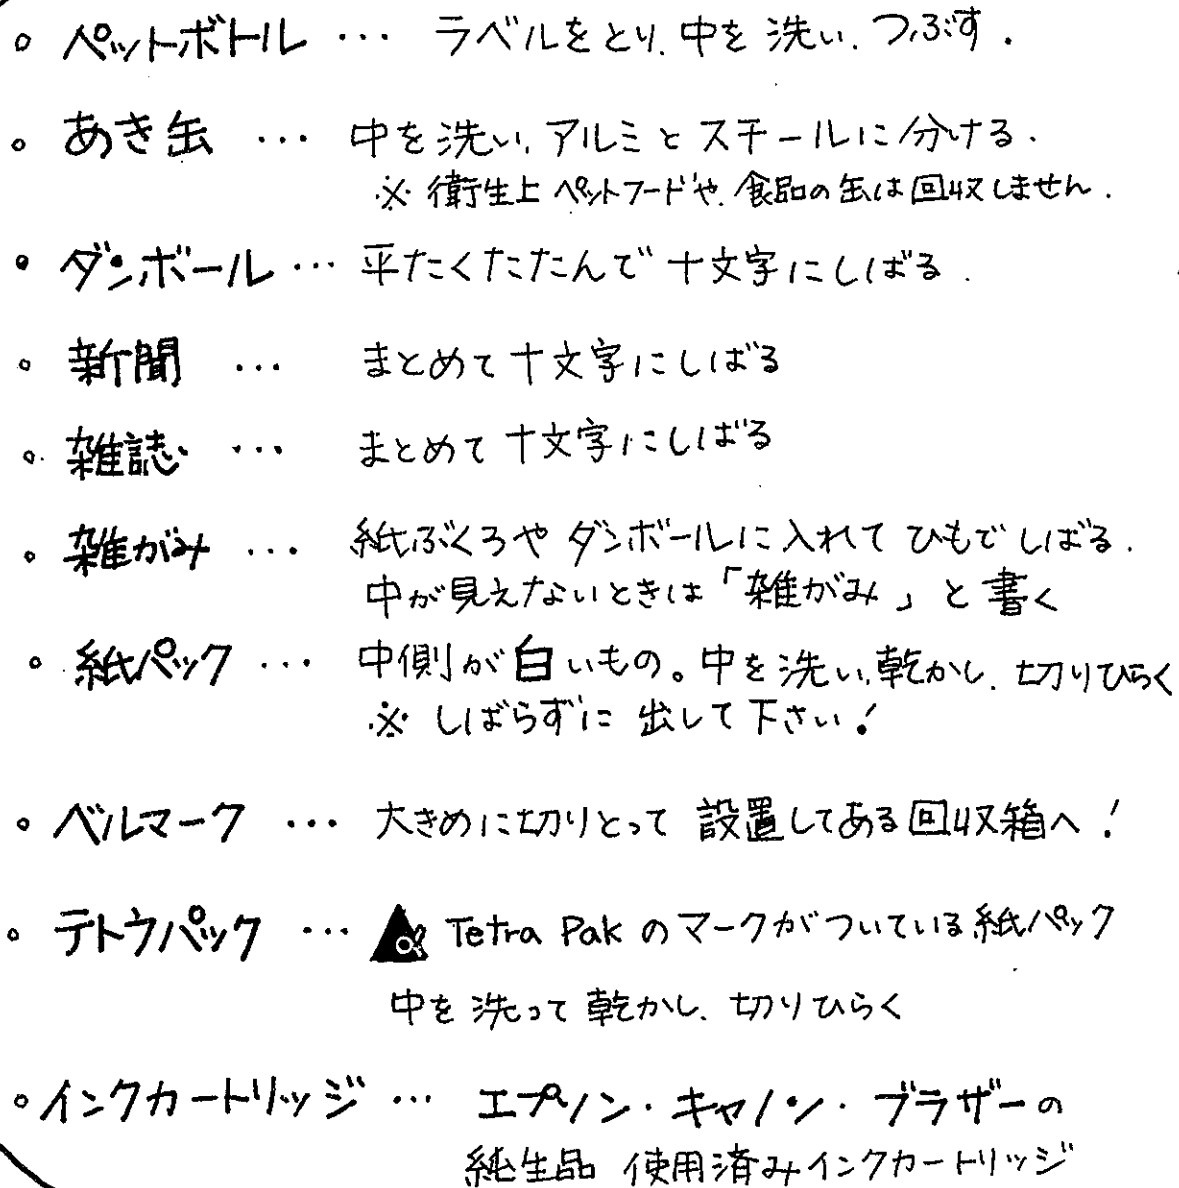 。ペットボトル … ラベルをとり、中を洗い、つぶす.
。あき缶 … 中を洗い、アルミとスチールに分ける.
※ 衛生上 ペットフードや、食品の缶は回収しません.
。ダンボール … 平たくたたんで十文字にしばる.
。新聞 … まとめて十文字にしばる
。雑誌 … まとめて十文字にしばる
。雑がみ … 紙ぶくろやダンボールに入れてひもでしばる.
中が見えないときは「雑がみ」と書く
。紙パック … 中側が白いもの。中を洗い、乾かし、切りひらく
※ しばらずに出して下さい!
。ベルマーク … 大きめに切りとって設置してある回収箱へ!
。テトラパック … Tetra Pak のマークがついている紙パック
中を洗って乾かし、切りひらく
。インクカートリッジ … エプソン・キャノン・ブラザーの
純生品 使用済みインクカートリッジ